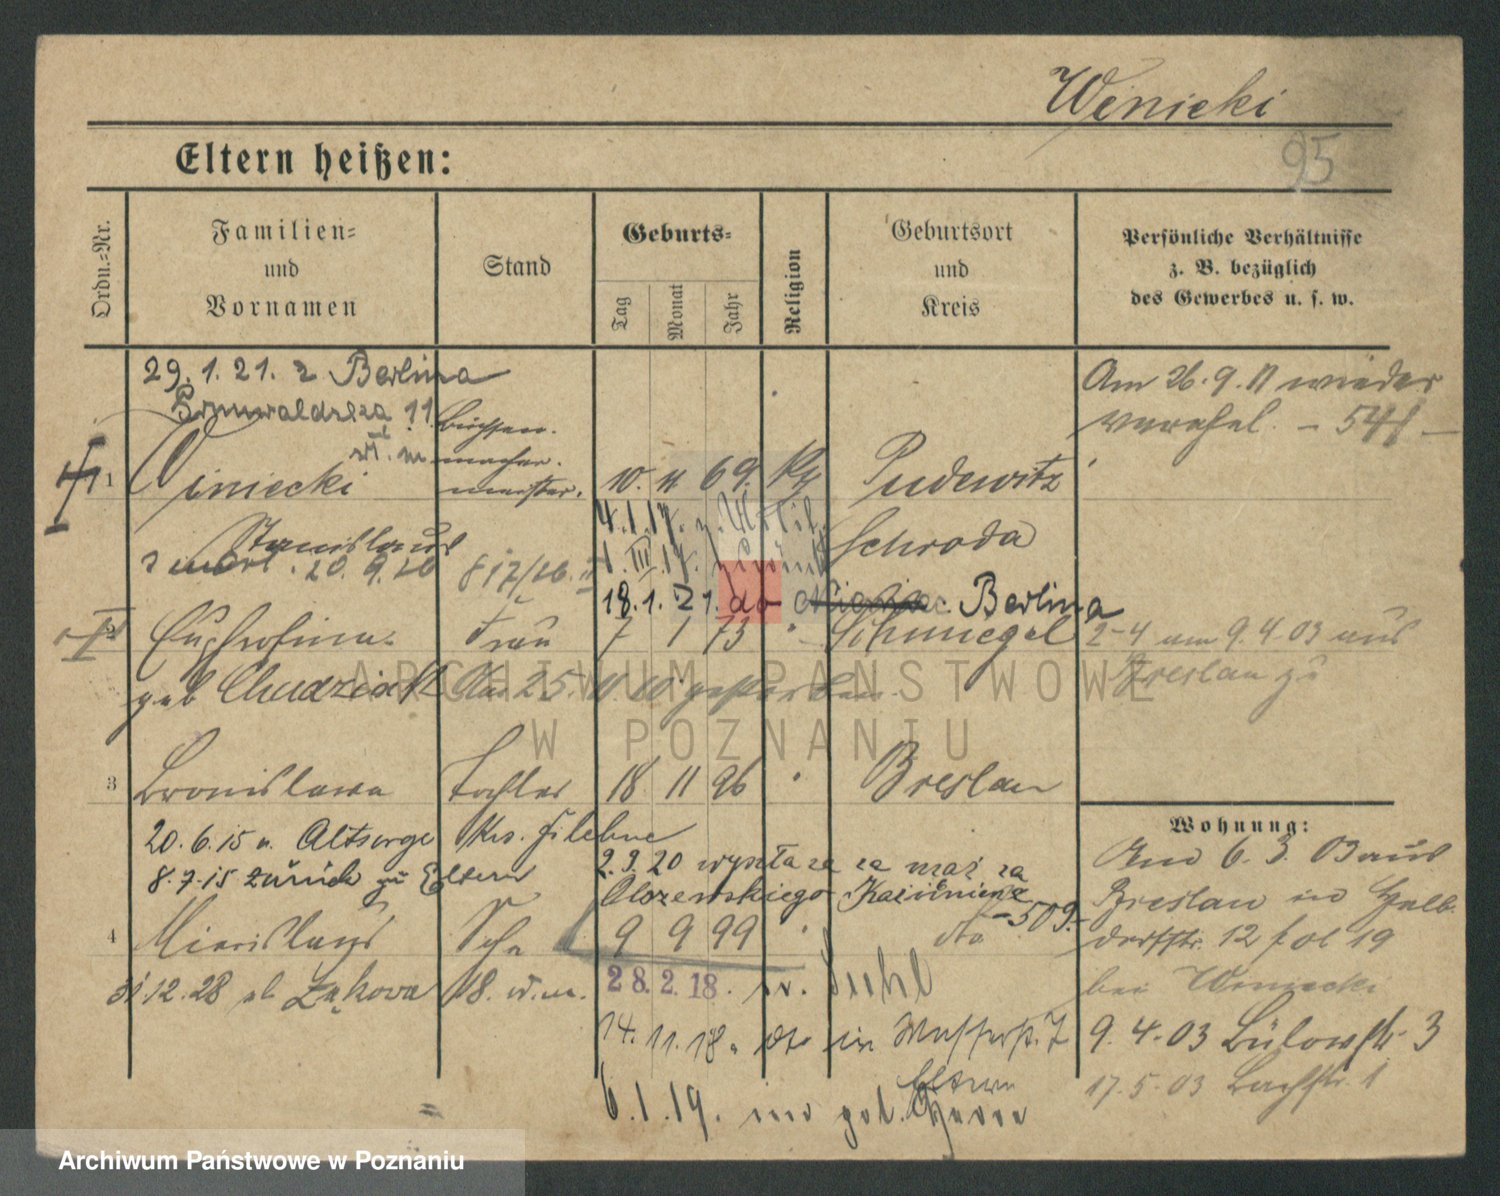 Winiecki
95
Eltern heißen:
Ordn.-Nr.
Familien-
und
Vornamen
Stand
Geburts-
Tag
Monat
Jahr
Religion
Geburtsort
und
Kreis
Persönliche Verhältnisse
z. B. bezüglich
des Gewerbes u. s. w.
29. 1. 21. z Berlina
11
Büchsen-
macher-
meister.
Am 26. 9. 11 wieder
verehel. - 541 -
1
Winiecki
10. 11 69.
Pudewitz
Stanislaus
4. 1. 17.
Schroda
20. 9. 20
1. III. 17.
18. 1. 21. do
Berlina
2
Euphrosina
Frau
7 1 73
Schmiegel
2-4 am 9. 4. 03 aus
Breslau zu
geb.
Am 25. gestorben.
3
Bronislawa
Tochter
18 11 96
Breslau
20. 6. 15 n. Altsorge Krs. Filehne
8. 7. 15 zurück zu Eltern
2. 9. 20 wyszła za za mąż za
Olszewskiego Kazimierza
- 509.
4
Sohn
9 9 99
dto
31. 12. 28
28. 2. 18. n. Suhl
14. 11. 18.
Eltern
6. 1. 19.
Wohnung:
Am 6. 3. 03 aus
Breslau in Halb-
dorfstr. 12 fol 19
bei Winiecki
9. 4. 03 Bülowstr. 3
17. 5. 03 Bachstr. 1
ARCHIWUM PAŃSTWOWE
W POZNANIU
Archiwum Państwowe w Poznaniu